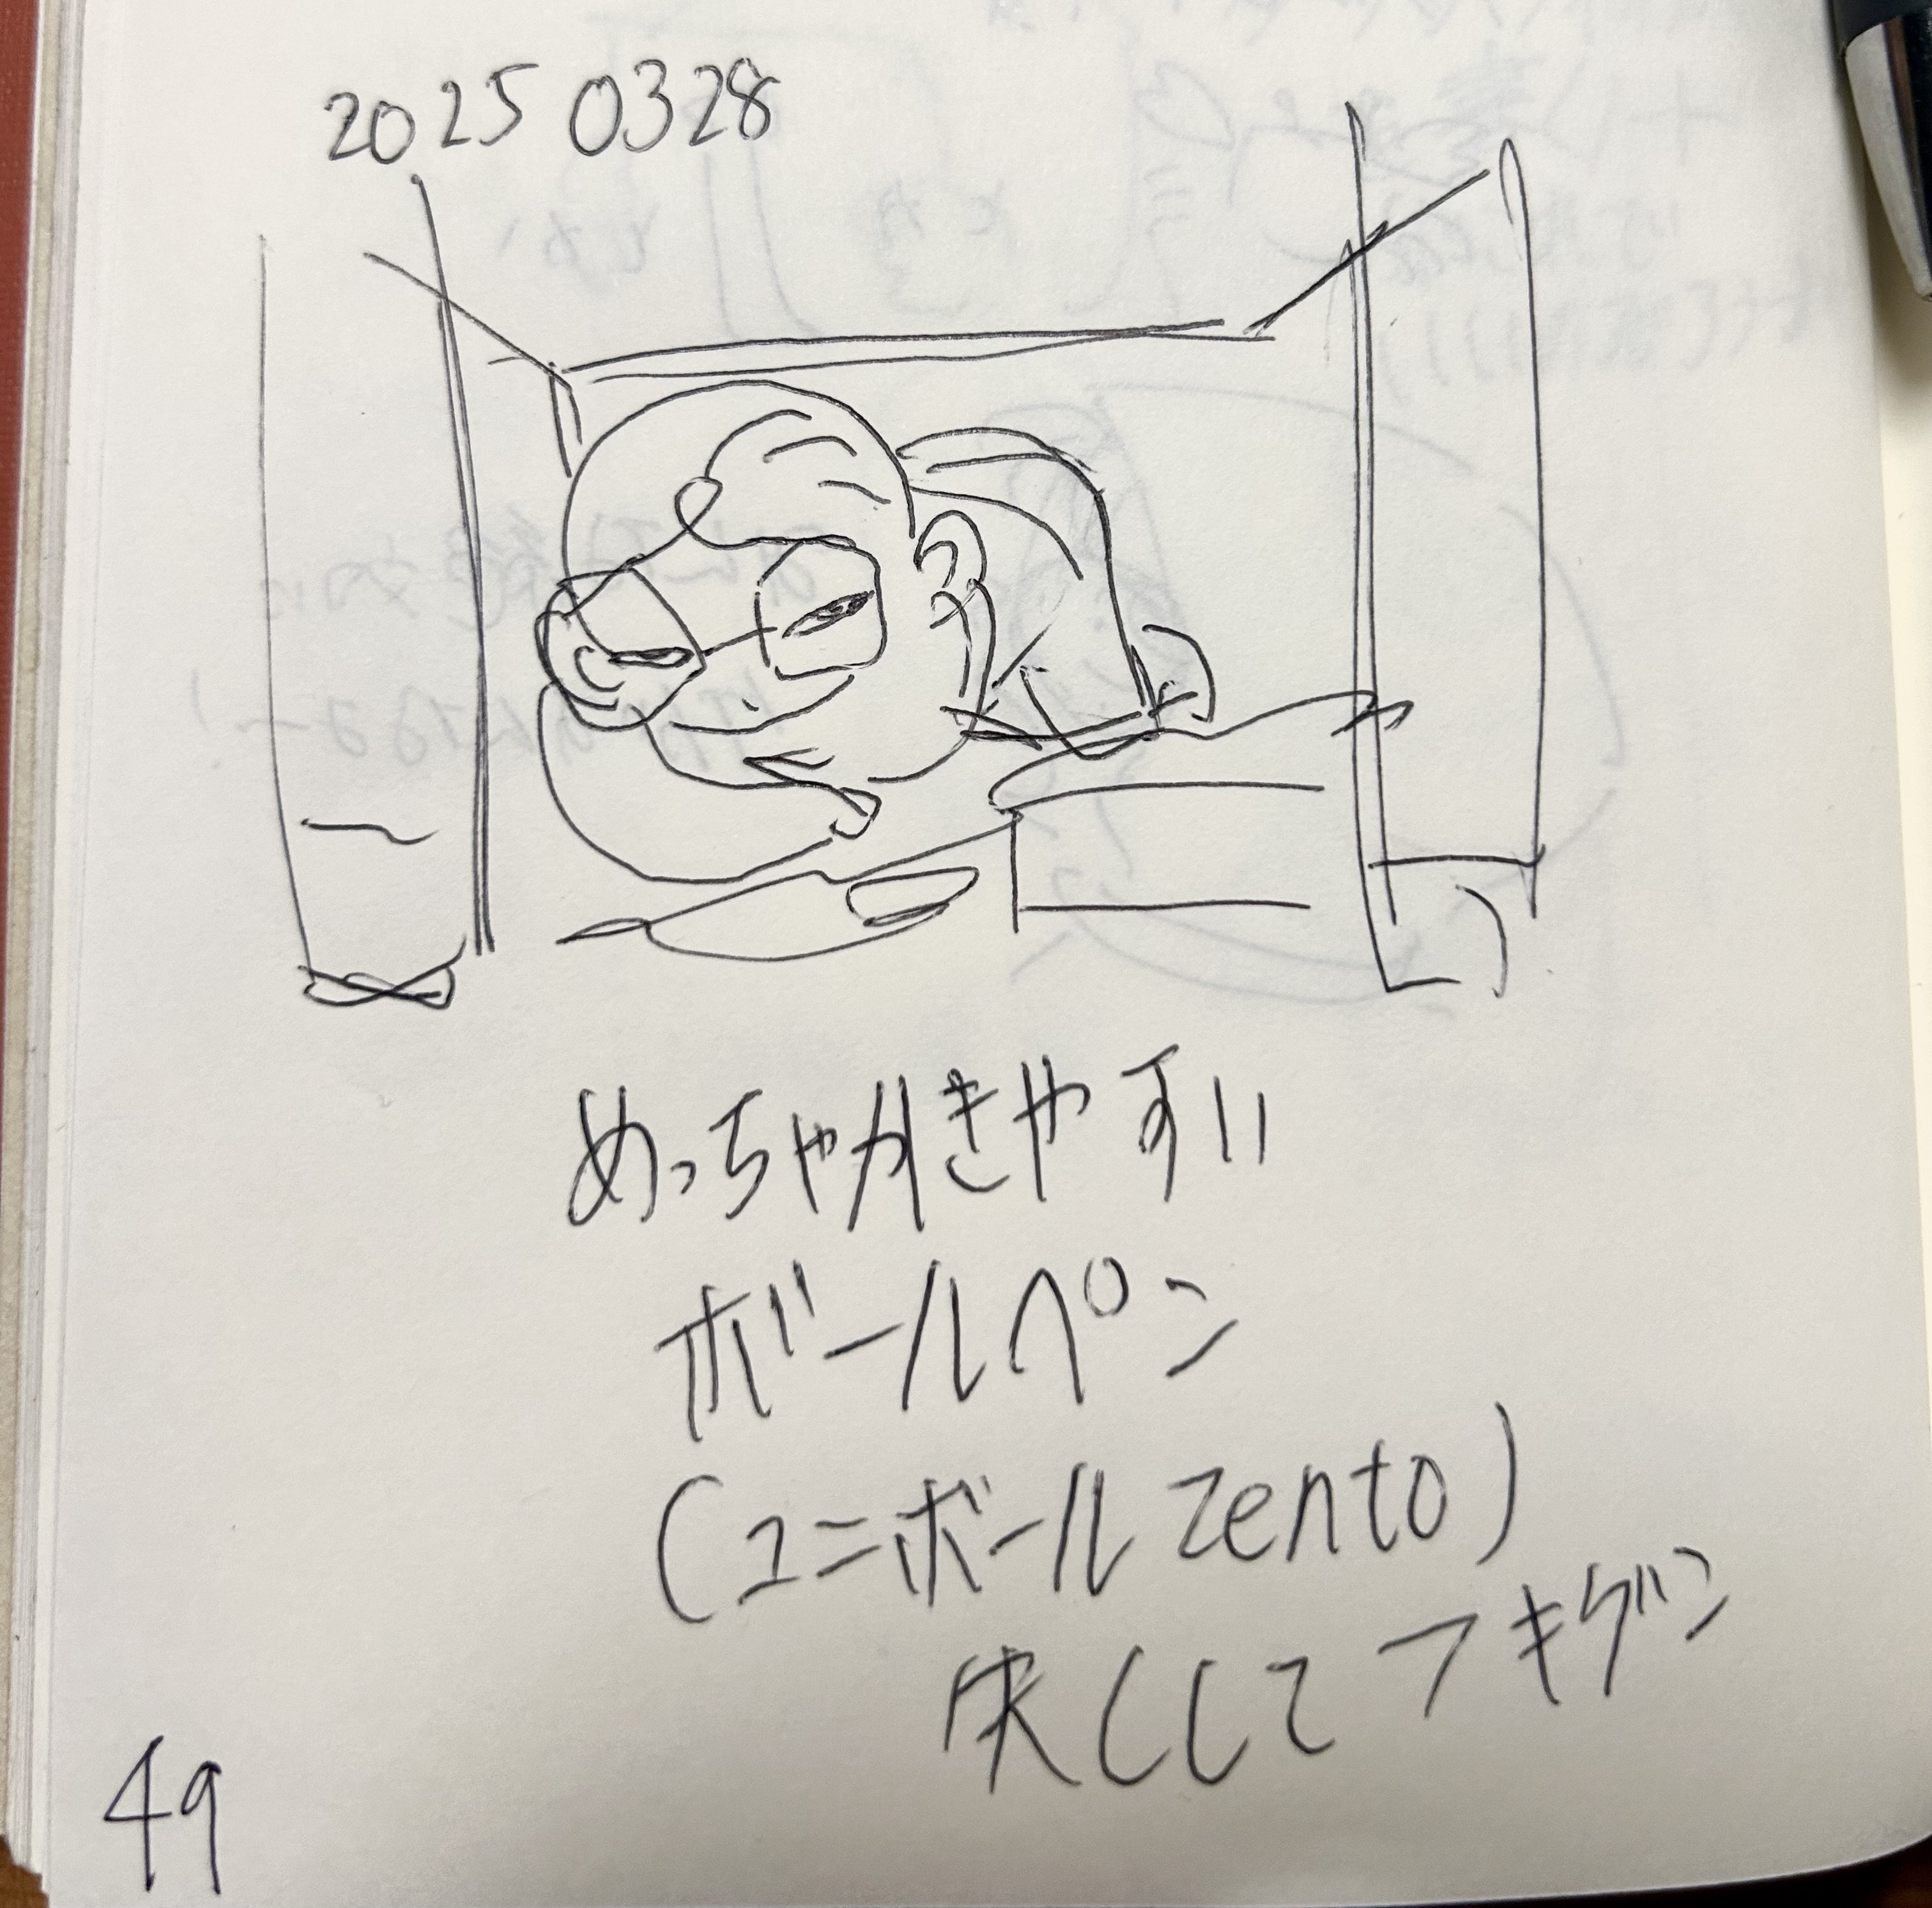 2025 0328
めっちゃかきやすい
ボールペン
(ユニボール zento)
失くしてフキゲン
49